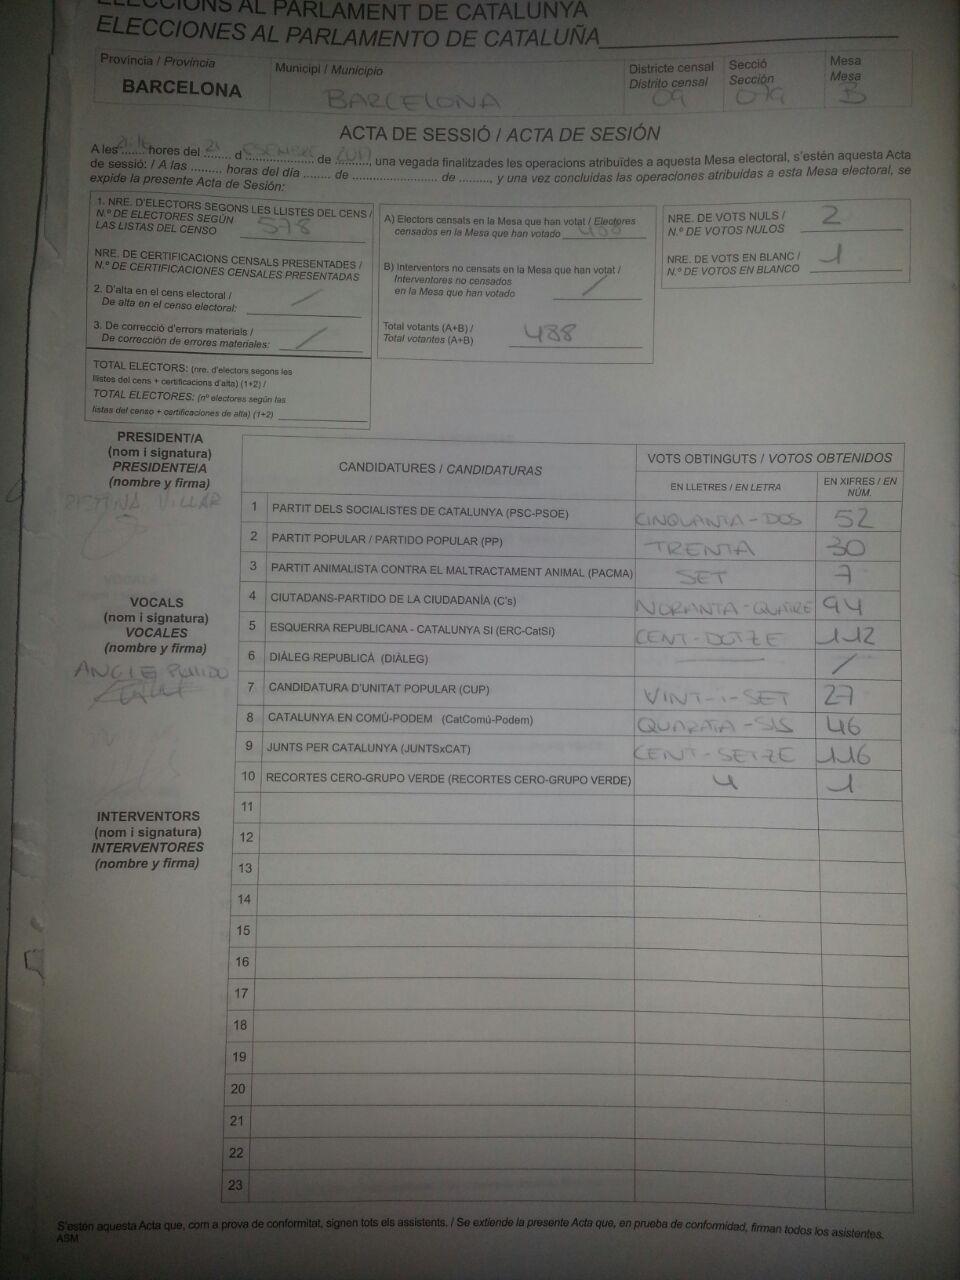 ELECCIONS AL PARLAMENT DE CATALUNYA
ELECCIONES AL PARLAMENTO DE CATALUÑA
Província / Provincia
BARCELONA
Municipi / Municipio
BARCELONA
Districte censal
Distrito censal
09
Secció
Sección
079
Mesa
Mesa
B
ACTA DE SESSIÓ / ACTA DE SESIÓN
A les ........ hores del 21 d ........ de 2017, una vegada finalitzades les operacions atribuïdes a aquesta Mesa electoral, s'estén aquesta Acta
de sessió: / A las ......... horas del día ........ de ......................... de ........., y una vez concluidas las operaciones atribuidas a esta Mesa electoral, se
expide la presente Acta de Sesión:
1. NRE. D'ELECTORS SEGONS LES LLISTES DEL CENS /
N.º DE ELECTORES SEGÚN
LAS LISTAS DEL CENSO 578
NRE. DE CERTIFICACIONS CENSALS PRESENTADES /
N.º DE CERTIFICACIONES CENSALES PRESENTADAS
2. D'alta en el cens electoral /
De alta en el censo electoral: /
3. De correcció d'errors materials /
De corrección de errores materiales: /
TOTAL ELECTORS: (nre. d'electors segons les
llistes del cens + certificacions d'alta) (1+2) /
TOTAL ELECTORES: (nº electores según las
listas del censo + certificaciones de alta) (1+2)
A) Electors censats en la Mesa que han votat / Electores
censados en la Mesa que han votado 488
B) Interventors no censats en la Mesa que han votat /
Interventores no censados
en la Mesa que han votado /
Total votants (A+B) /
Total votantes (A+B) 488
NRE. DE VOTS NULS /
N.º DE VOTOS NULOS 2
NRE. DE VOTS EN BLANC /
N.º DE VOTOS EN BLANCO 1
PRESIDENT/A
(nom i signatura)
PRESIDENTE/A
(nombre y firma)
VILLAR
VOCALS
(nom i signatura)
VOCALES
(nombre y firma)
INTERVENTORS
(nom i signatura)
INTERVENTORES
(nombre y firma)
CANDIDATURES / CANDIDATURAS
VOTS OBTINGUTS / VOTOS OBTENIDOS
EN LLETRES / EN LETRA
EN XIFRES / EN NÚM.
1 PARTIT DELS SOCIALISTES DE CATALUNYA (PSC-PSOE) CINQUANTA-DOS 52
2 PARTIT POPULAR / PARTIDO POPULAR (PP) TRENTA 30
3 PARTIT ANIMALISTA CONTRA EL MALTRACTAMENT ANIMAL (PACMA) SET 7
4 CIUTADANS-PARTIDO DE LA CIUDADANÍA (C's) NORANTA-QUATRE 94
5 ESQUERRA REPUBLICANA - CATALUNYA SI (ERC-CatSi) CENT-DOTZE 112
6 DIÀLEG REPUBLICÀ (DIÀLEG) — /
7 CANDIDATURA D'UNITAT POPULAR (CUP) VINT-I-SET 27
8 CATALUNYA EN COMÚ-PODEM (CatComú-Podem) QUARATA-SIS 46
9 JUNTS PER CATALUNYA (JUNTSxCAT) CENT-SETZE 116
10 RECORTES CERO-GRUPO VERDE (RECORTES CERO-GRUPO VERDE) U 1
11
12
13
14
15
16
17
18
19
20
21
22
23
S'estén aquesta Acta que, com a prova de conformitat, signen tots els assistents. / Se extiende la presente Acta que, en prueba de conformidad, firman todos los asistentes.
ASM